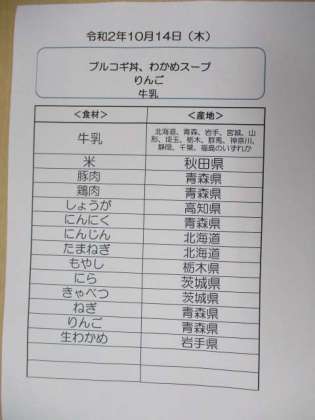 令和2年10月14日（木）
プルコギ丼、わかめスープ
りんご
牛乳
＜食材＞ ＜産地＞
牛乳 北海道、青森、岩手、宮城、山
形、埼玉、栃木、群馬、神奈川、
静岡、千葉、福島のいずれか
米 秋田県
豚肉 青森県
鶏肉 青森県
しょうが 高知県
にんにく 青森県
にんじん 北海道
たまねぎ 北海道
もやし 栃木県
にら 茨城県
きゃべつ 茨城県
ねぎ 青森県
りんご 青森県
生わかめ 岩手県